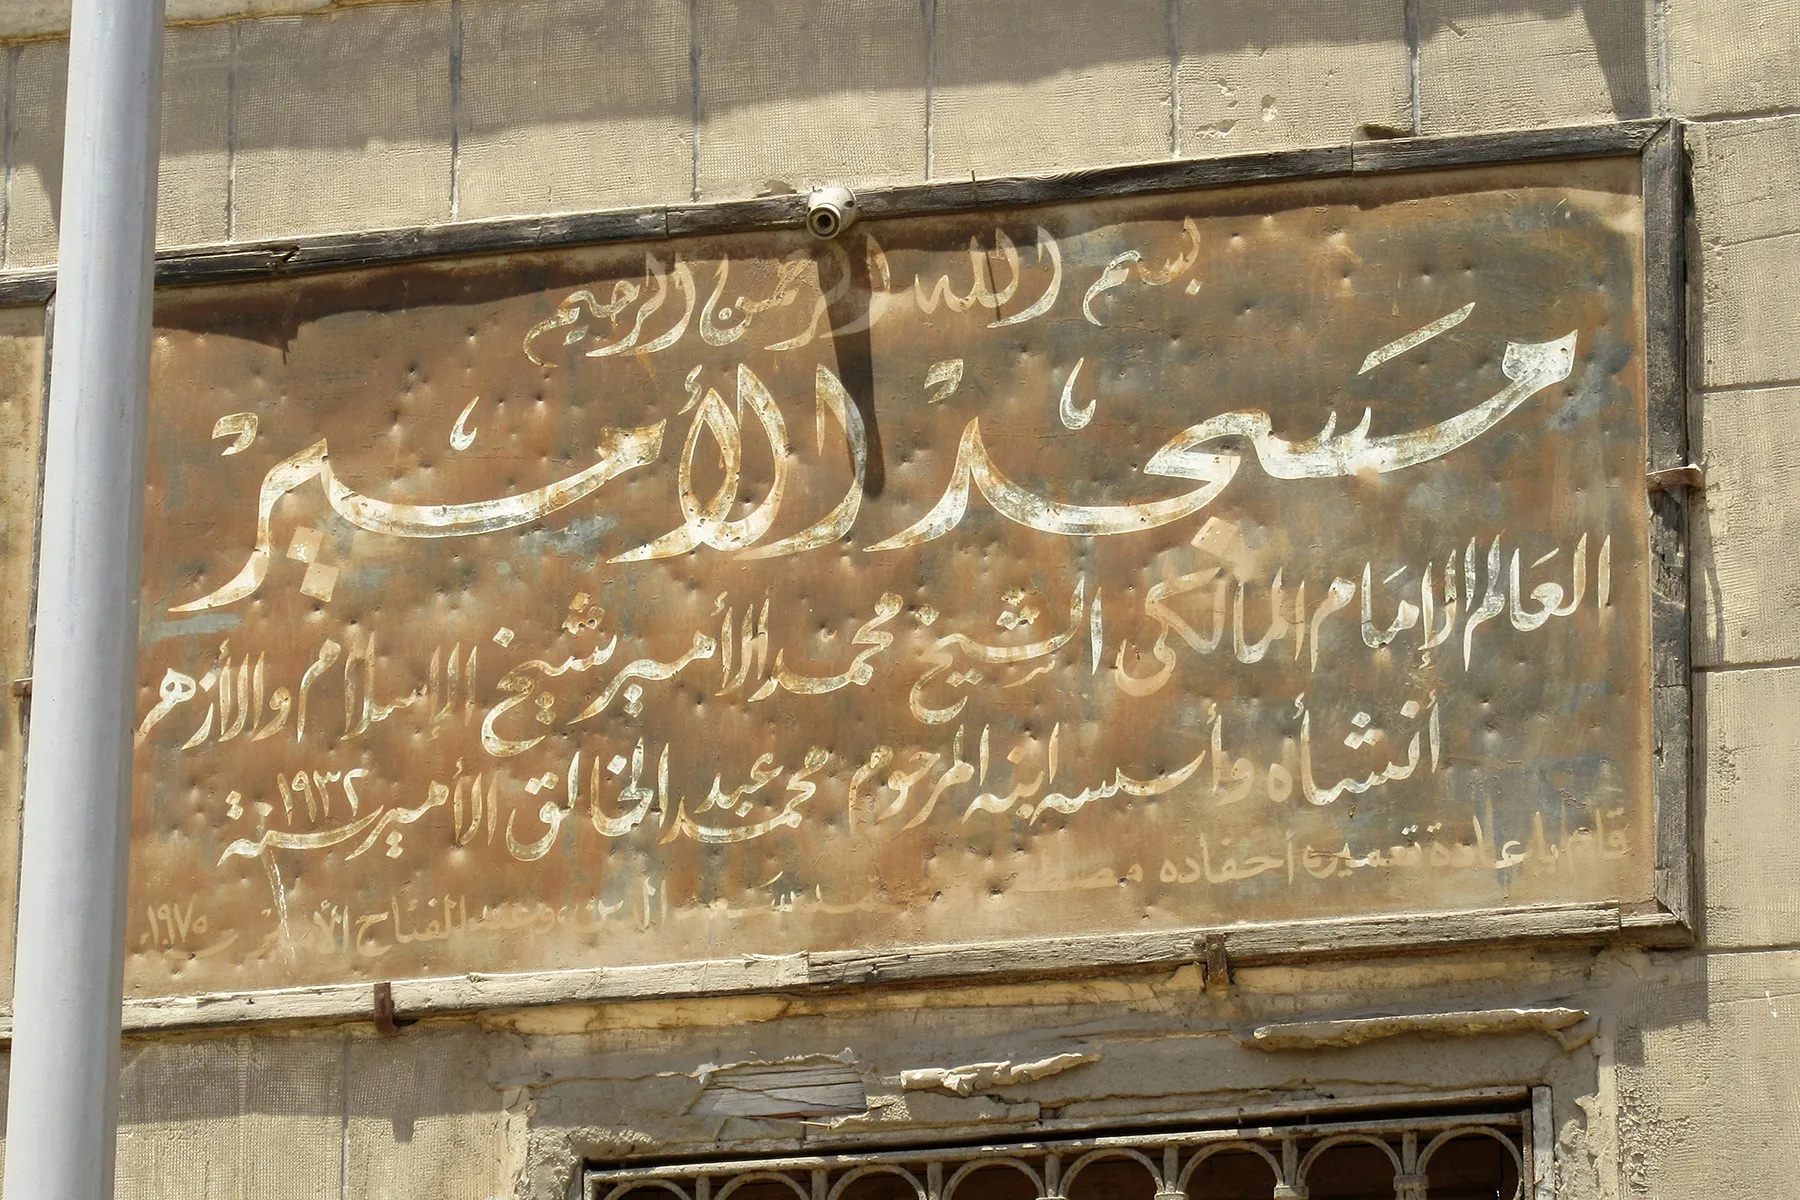 بسم الله الرحمن الرحيم
مسجد الأمير
العالم الإمام المالكي الشيخ محمد الأمير شيخ الإسلام والأزهر
أنشأه وأسسه ابنه المرحوم محمد عبد الخالق الأمير سنة ١٩٣٢
قام بإعادة تعميره أحفاده سعد الدين وعبد الفتاح الأمير ١٩٧٥